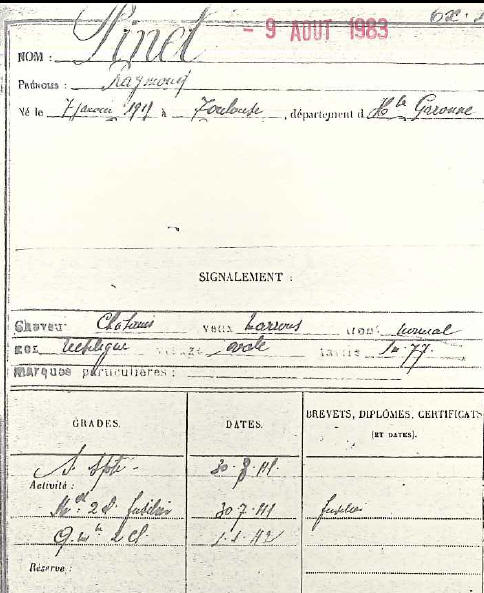 - 9 AOUT 1983
NOM : Pinel
PRÉNOMS : Raymond
Né le 7 Janvier 191 à Toulouse, département d Hte Garonne
SIGNALEMENT :
Cheveux Chatains Yeux marrons front normal
nez visage ovale taille 1m77
marques particulières :
GRADES. DATES. BREVETS, DIPLÔMES, CERTIFICATS
(ET DATES).
Activité : 30.7.41
Mot 2 cl. fusilier 30 7 41 fusilier
Q. m 2 cl. 1.1.42
Réserve :